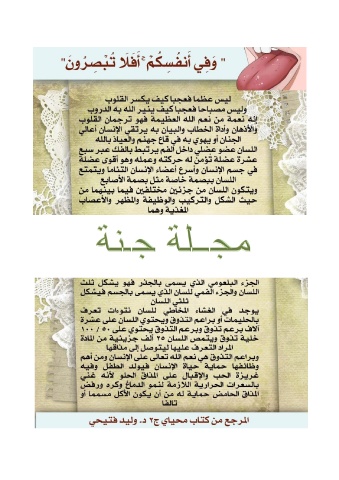 " وَفِي أَنفُسِكُمْ ۚ أَفَلَا تُبْصِرُونَ"
ليس عظما فعجبا كيف يكسر القلوب
وليس مصباحا فعجبا كيف ينير الله به الدروب
إنه نعمة من نعم الله العظيمة فهو ترجمان القلوب
والأذهان وأداة الخطاب والبيان به يرتقي الإنسان أعالي
الجنان أو يهوي به في قاع جهنم والعياذ بالله
اللسان عضو عضلي داخل الفم يرتبط بالفك عبر سبع
عشرة عضلة تؤمن له حركته وعمله وهو أقوى عضلة
في جسم الإنسان وأسرع أعضاء الإنسان التئاما ويتمتع
اللسان ببصمة خاصة مثل بصمة الأصابع
ويتكون اللسان من جزئين مختلفين فيما بينهما من
حيث الشكل والتركيب والوظيفة والمظهر والأعصاب
المغذية وهما
مجلة جنة
الجزء البلعومي الذي يسمى بالجذر فهو يشكل ثلث
اللسان والجزء الفمي للسان الذي يسمى بالجسم فيشكل
ثلثي اللسان
يوجد في الغشاء المخاطي للسان نتوءات تعرف
بالحليمات أو براعم التذوق ويحتوي اللسان على عشرة
آلاف برعم تذوق وبرعم التذوق يحتوي على ٥٠ / ١٠٠
خلية تذوق ويتمعن اللسان ٢٥ ألف جزيئية من المادة
المراد التعرف عليها ليتوصل إلى مذاقها
وبراعم التذوق هي نعم الله تعالى على الإنسان ومن أهم
وظائفها حماية حياة الإنسان فيولد الطفل وفيه
غريزة الحب والإقبال على المذاق الحلو لأنه غني
بالسعرات الحرارية اللازمة لنمو الدماغ وكره ورفض
المذاق الحامض حماية له من أن يكون الأكل مسمما أو
تالفا
المرجع من كتاب محياي ج٢ د. وليد فتيحي